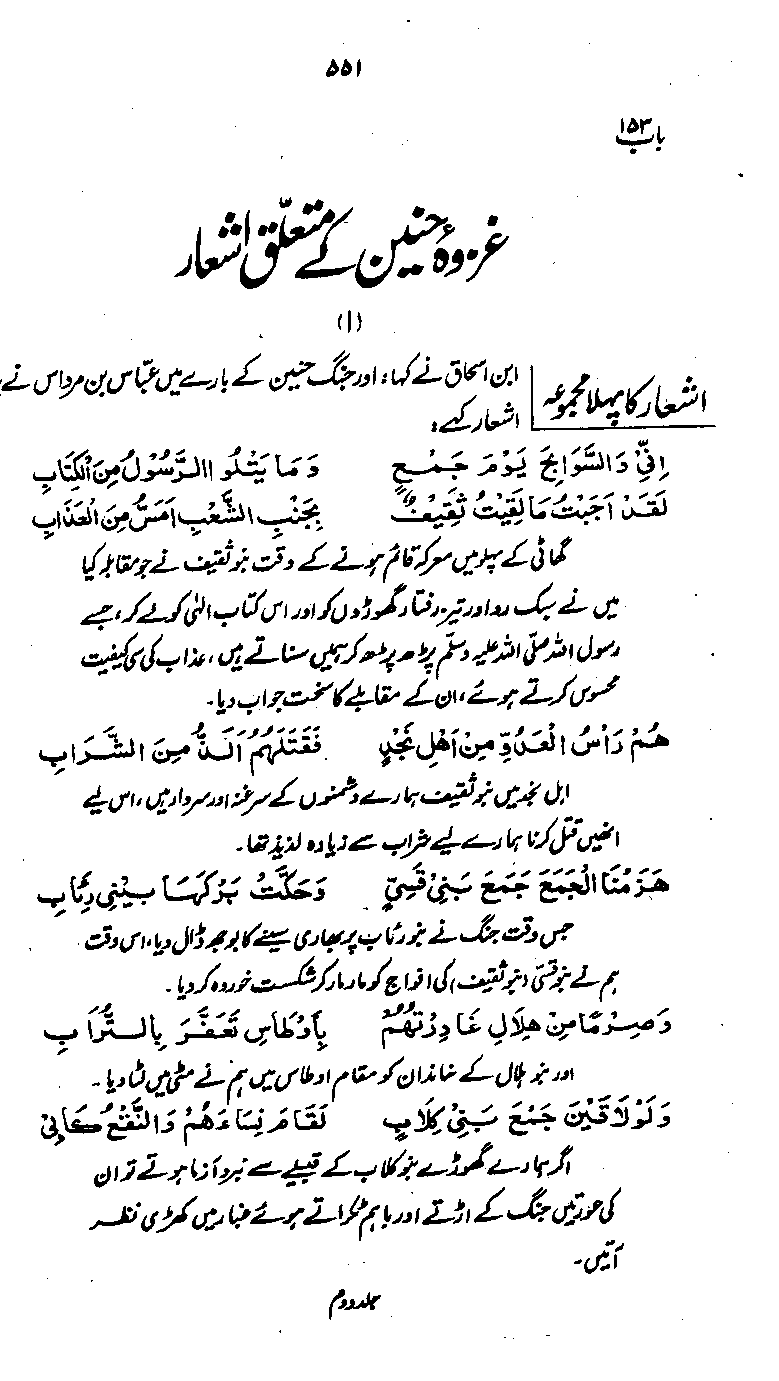 ۵۵۱
باب ۱۵۳
غزوۂ حنین کے متعلّق اشعار
(۱)
اشعار کا پہلا مجموعہ
ابن اسحاق نے کہا: اور جنگ حنین کے بارے میں عبّاس بن مرداس نے
اشعار کہے:
اِنِّیْ وَالسَّوَابِحَ یَوْمَ جَمْعٍ وَمَا یَتْلُوا الرَّسُوْلُ مِنَ الْکِتَابِ
لَقَدْ اَجَبْتُ مَا لَقِیَتْ ثَقِیْفٌ بِجَنْبِ الشَّعْبِ اَمَسَّ مِنَ الْعَذَابِ
گھاٹی کے پہلو میں معرکہ قائم ہونے کے وقت بنو ثقیف نے جو مقابلہ کیا
میں نے سبک رو اور تیز رفتار گھوڑوں کو اور اس کتاب الٰہی کو لے کر، جسے
رسول اللہ صلّی اللہ علیہ وسلّم پڑھ پڑھ کر ہمیں سناتے ہیں، عذاب کی سی کیفیت
محسوس کرتے ہوئے، ان کے مقابلے کا سخت جواب دیا۔
ھُمْ رَاْسُ الْعَدُوِّ مِنْ اَھْلِ نَجْدٍ فَقَتْلُھُمْ اَلَذُّ مِنَ الشَّرَابِ
اہل نجد میں بنو ثقیف ہمارے دشمنوں کے سرغنہ اور سردار ہیں، اس لیے
انھیں قتل کرنا ہمارے لیے شراب سے زیادہ لذیذ تھا۔
ھَزَمْنَا الْجَمْعَ جَمْعَ بَنِیْ قَسِیٍّ وَحَکَّتْ بَرْکَھَا بِبَنِیْ رِئَابِ
جس وقت جنگ نے بنو رئاب پر بھاری سینے کا بوجھ ڈال دیا، اس وقت
ہم نے بنو قسّی (بنو ثقیف) کی افواج کو مار مار کر شکست خوردہ کر دیا۔
وَصِرْمًا مِنْ ھِلَالٍ غَادَرَتْھُمْ بِاَوْطَاسٍ تُعَفَّرَ بِالتُّرَابِ
اور بنو ہلال کے خاندان کو مقام اوطاس میں ہم نے مٹی میں لٹا دیا۔
وَلَوْ لَاقَیْنَ جَمْعَ بَنِیْ کِلَابٍ لَقَامَ نِسَاءَھُمْ وَالنَّقْعُ کَابِیْ
اگر ہمارے گھوڑے بنو کلاب کے قبیلے سے نبرد آزما ہوتے تو ان
کی عورتیں جنگ کے اڑتے اور باہم ٹکراتے ہوئے غبار میں کھڑی نظر
آتیں۔
جلد دوم